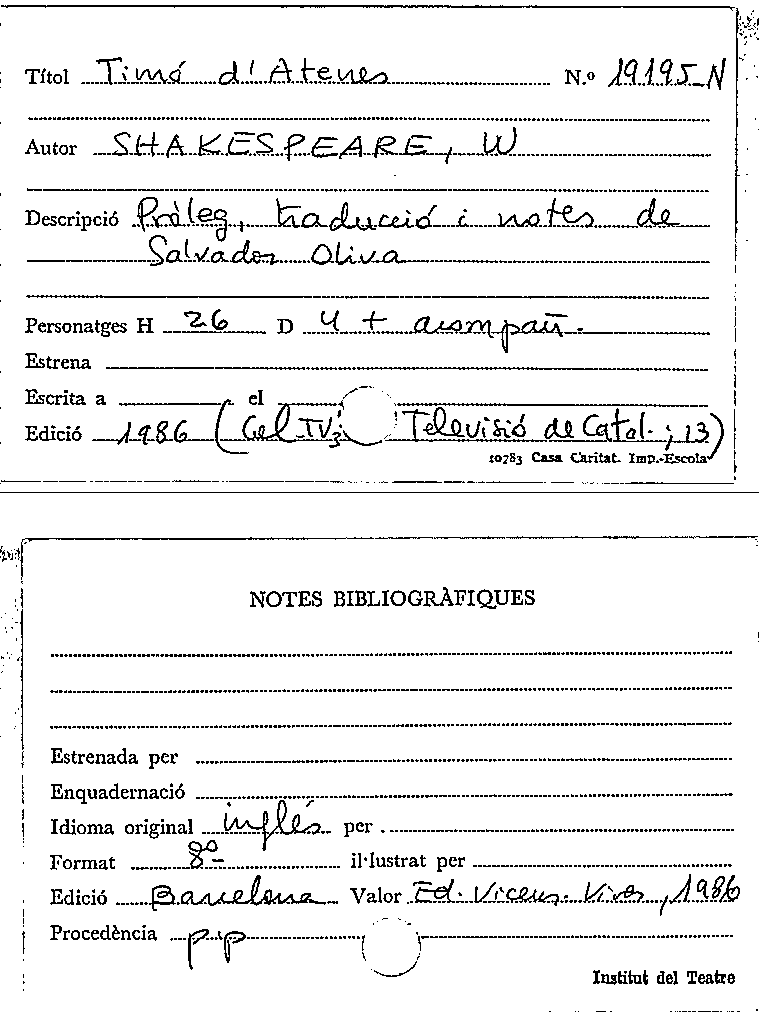 Títol Timó d'Atenes N.º 19195-N
Autor SHAKESPEARE, W
Descripció Pròleg, traducció i notes de
Salvador Oliva
Personatges H 26 D 4 + acompañ.
Estrena
Escrita a el
Edició 1986 (Col. TV3; Televisió de Catal.; 13)
10783 Casa Caritat. Imp.-Escola
NOTES BIBLIOGRÀFIQUES
Estrenada per
Enquadernació
Idioma original inglés per
Format 8º il·lustrat per
Edició Barcelona Valor Ed. Vicens-Vives, 1986
Procedència pp
Institut del Teatre